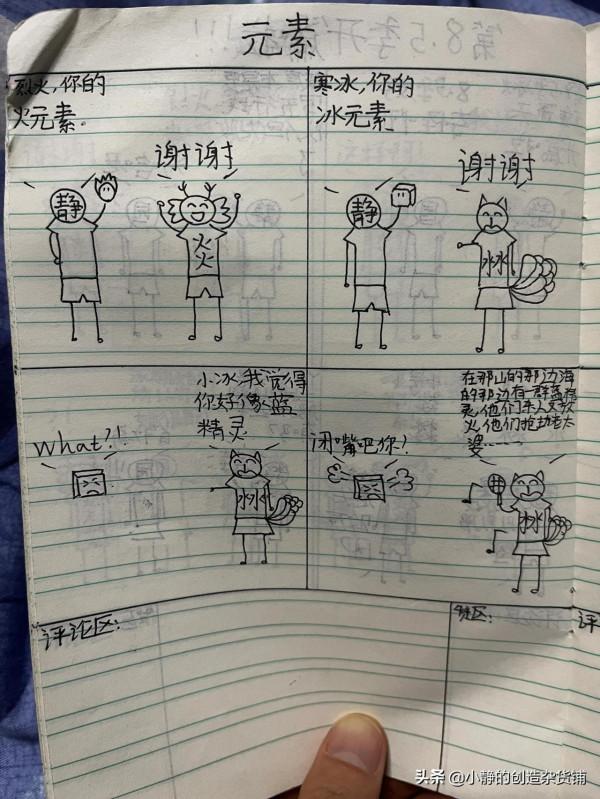 元素
烈火,你的
火元素。
谢谢
静
火火
寒冰,你的
冰元素
谢谢
静
冰冰
What?!
小冰,我觉得
你好像蓝
精灵
冰冰
闭嘴吧你!
在那山的那边海
的那边有一群蓝精
灵,他们
婆……
冰冰
评论区:
评
头条 @小静的创造杂货铺